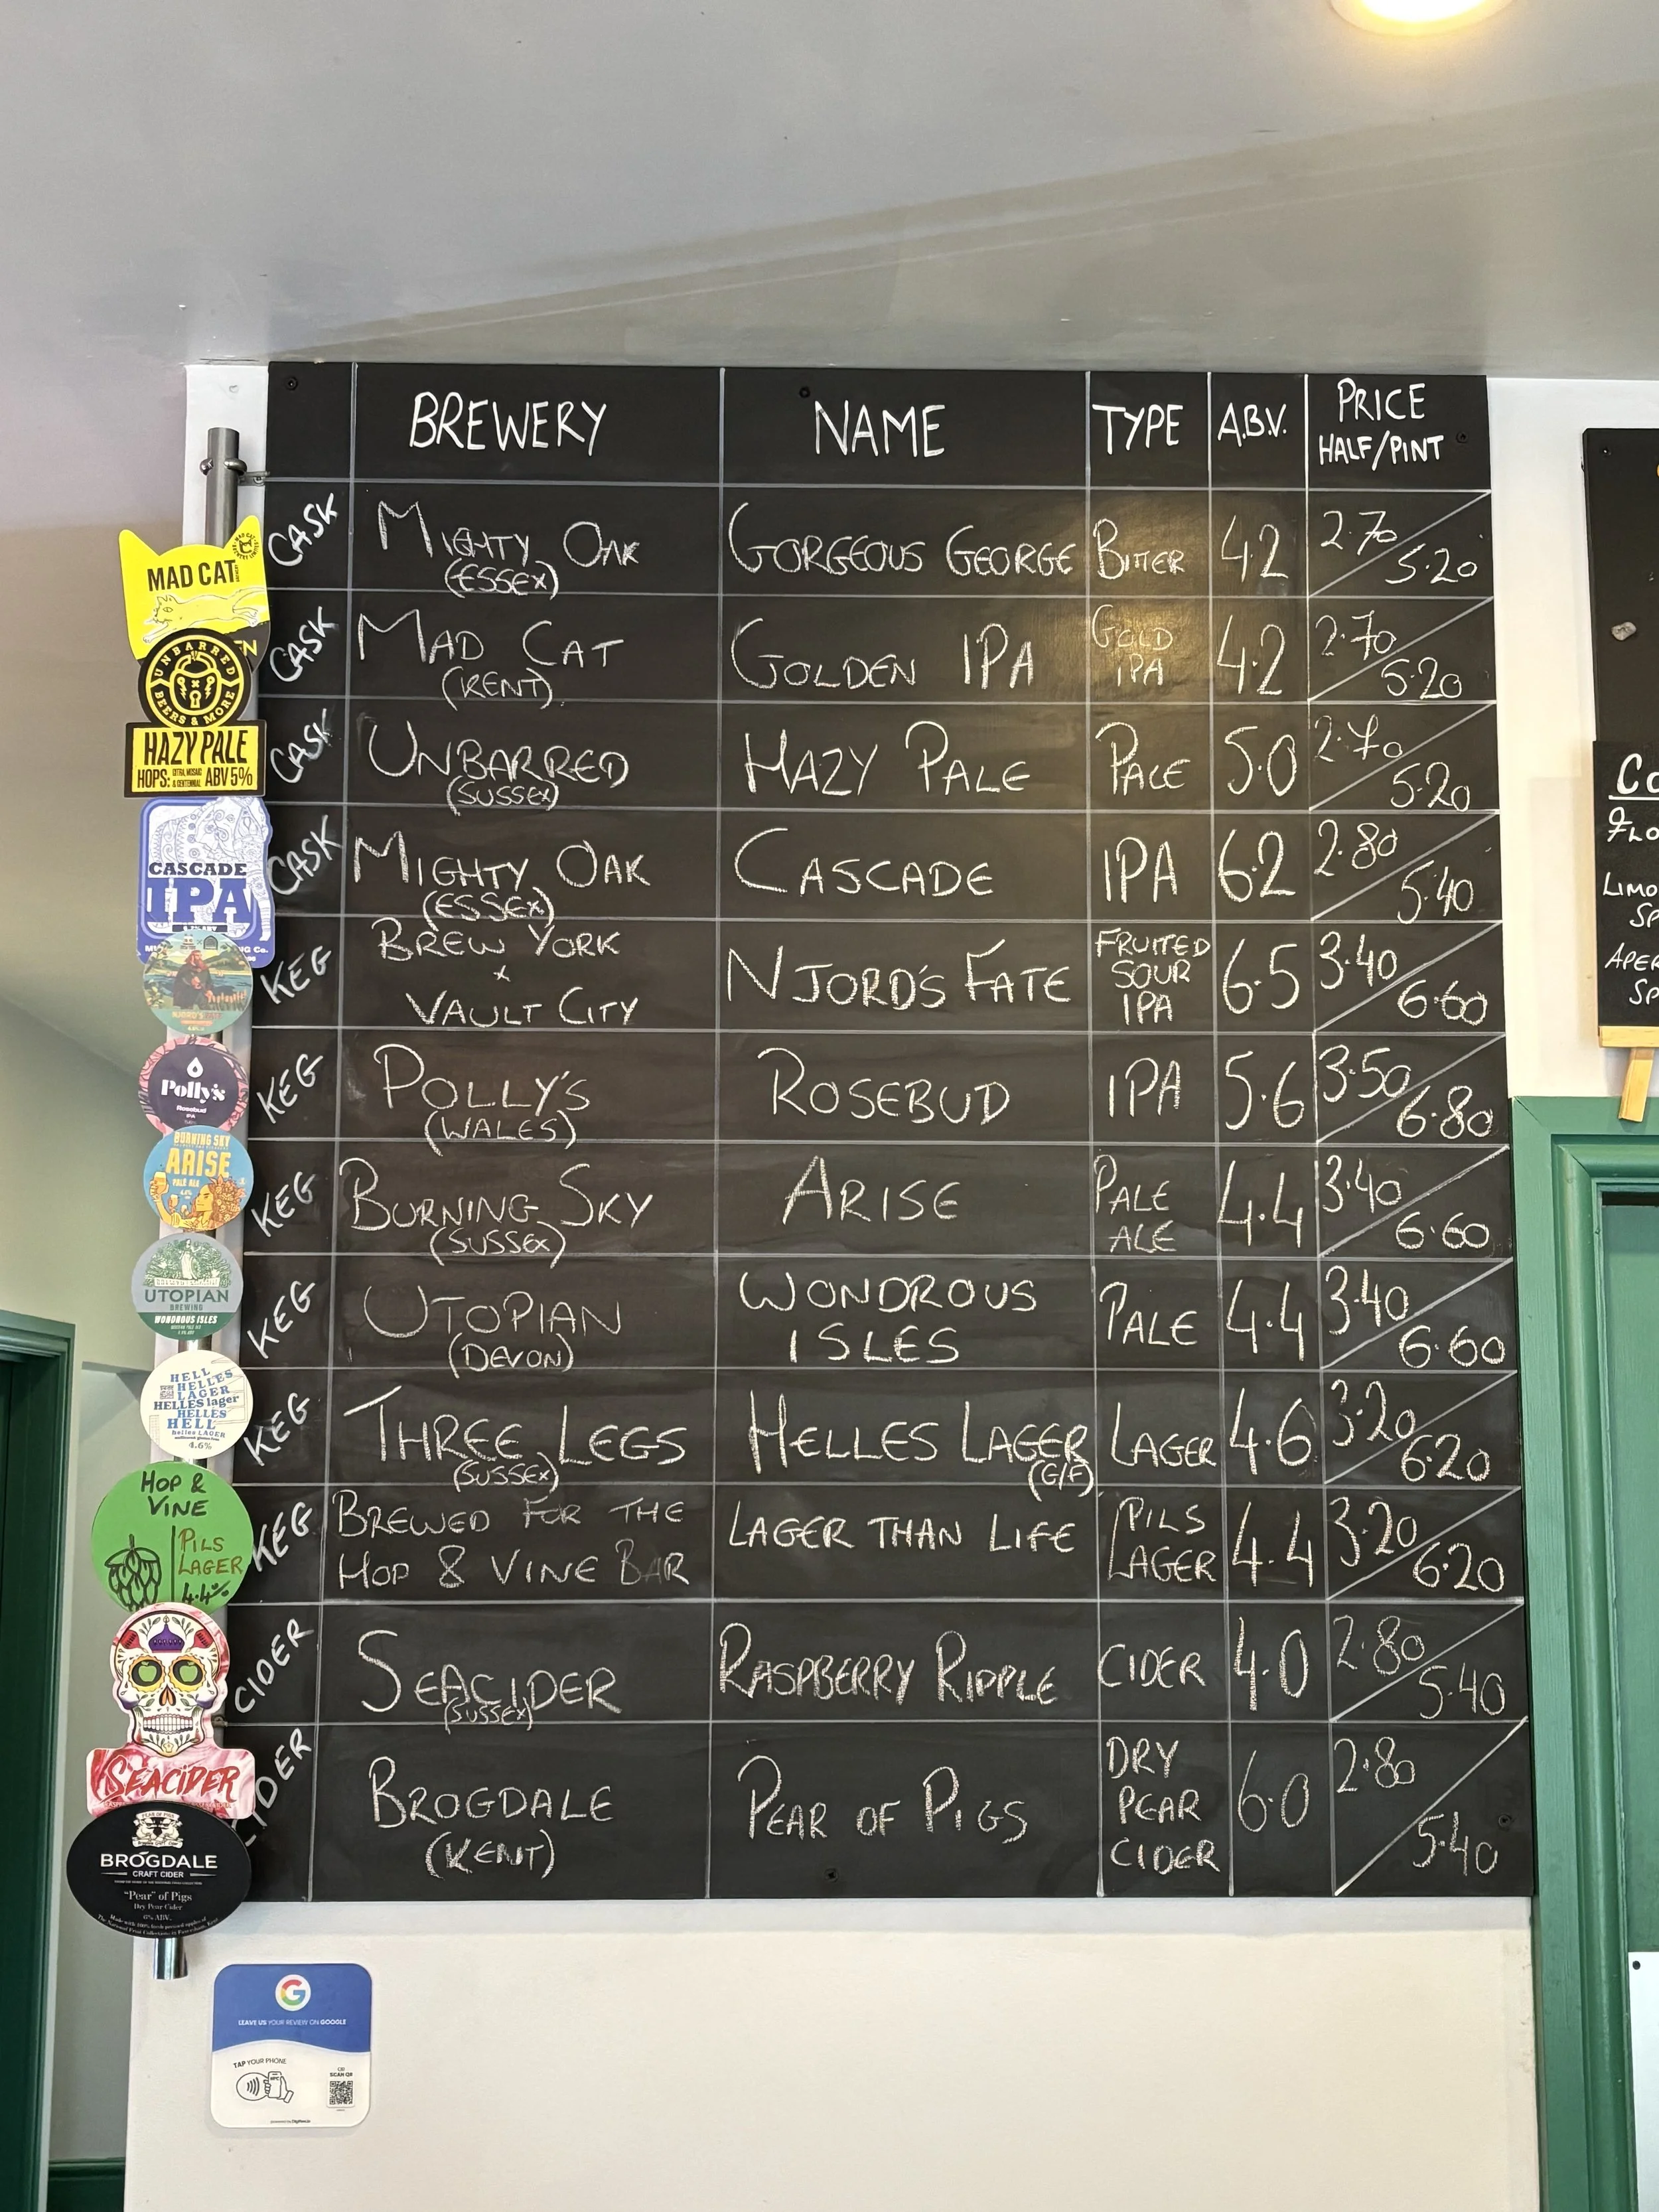 BREWERY NAME TYPE A.B.V. PRICE
HALF/PINT
CASK MIGHTY OAK GORGEOUS GEORGE BITTER 4.2 2.70 5.20
(ESSEX)
CASK MAD CAT GOLDEN IPA GOLD IPA 4.2 2.70 5.20
(KENT)
CASK UNBARRED HAZY PALE PALE 5.0 2.70 5.20
(SUSSEX)
CASK MIGHTY OAK CASCADE IPA 6.2 2.80 5.40
(ESSEX)
KEG BREW YORK x VAULT CITY NJORD'S FATE FRUITED SOUR IPA 6.5 3.40 6.60
KEG POLLY'S ROSEBUD IPA 5.6 3.50 6.80
(WALES)
KEG BURNING SKY ARISE PALE ALE 4.4 3.40 6.60
(SUSSEX)
KEG UTOPIAN WONDROUS ISLES PALE 4.4 3.40 6.60
(DEVON)
KEG THREE LEGS HELLES LAGER LAGER 4.6 3.20 6.20
(SUSSEX) (G/F)
KEG BREWED FOR THE HOP & VINE BAR LAGER THAN LIFE PILS LAGER 4.4 3.20 6.20
CIDER SEACIDER RASPBERRY RIPPLE CIDER 4.0 2.80 5.40
(SUSSEX)
CIDER BROGDALE PEAR OF PIGS DRY PEAR CIDER 6.0 2.80 5.40
(KENT)
MAD CAT
UNBARRED
BEERS & MORE
HAZY PALE
HOPS: ABV 5%
CASCADE
IPA
NJORD'S
Polly's
Rosebud
IPA
BURNING SKY
ARISE
PALE ALE
UTOPIAN
BREWING
WONDROUS ISLES
HELL
HELLES
LAGER
HELLES lager
HELLES
HELL
helles LAGER
4.6%
HOP &
VINE
PILS
LAGER
4.4%
SEACIDER
BROGDALE
CRAFT CIDER
"Pear" of Pigs
Dry Pear Cider
6% ABV.
LEAVE US YOUR REVIEW ON GOOGLE
TAP YOUR PHONE
SCAN QR